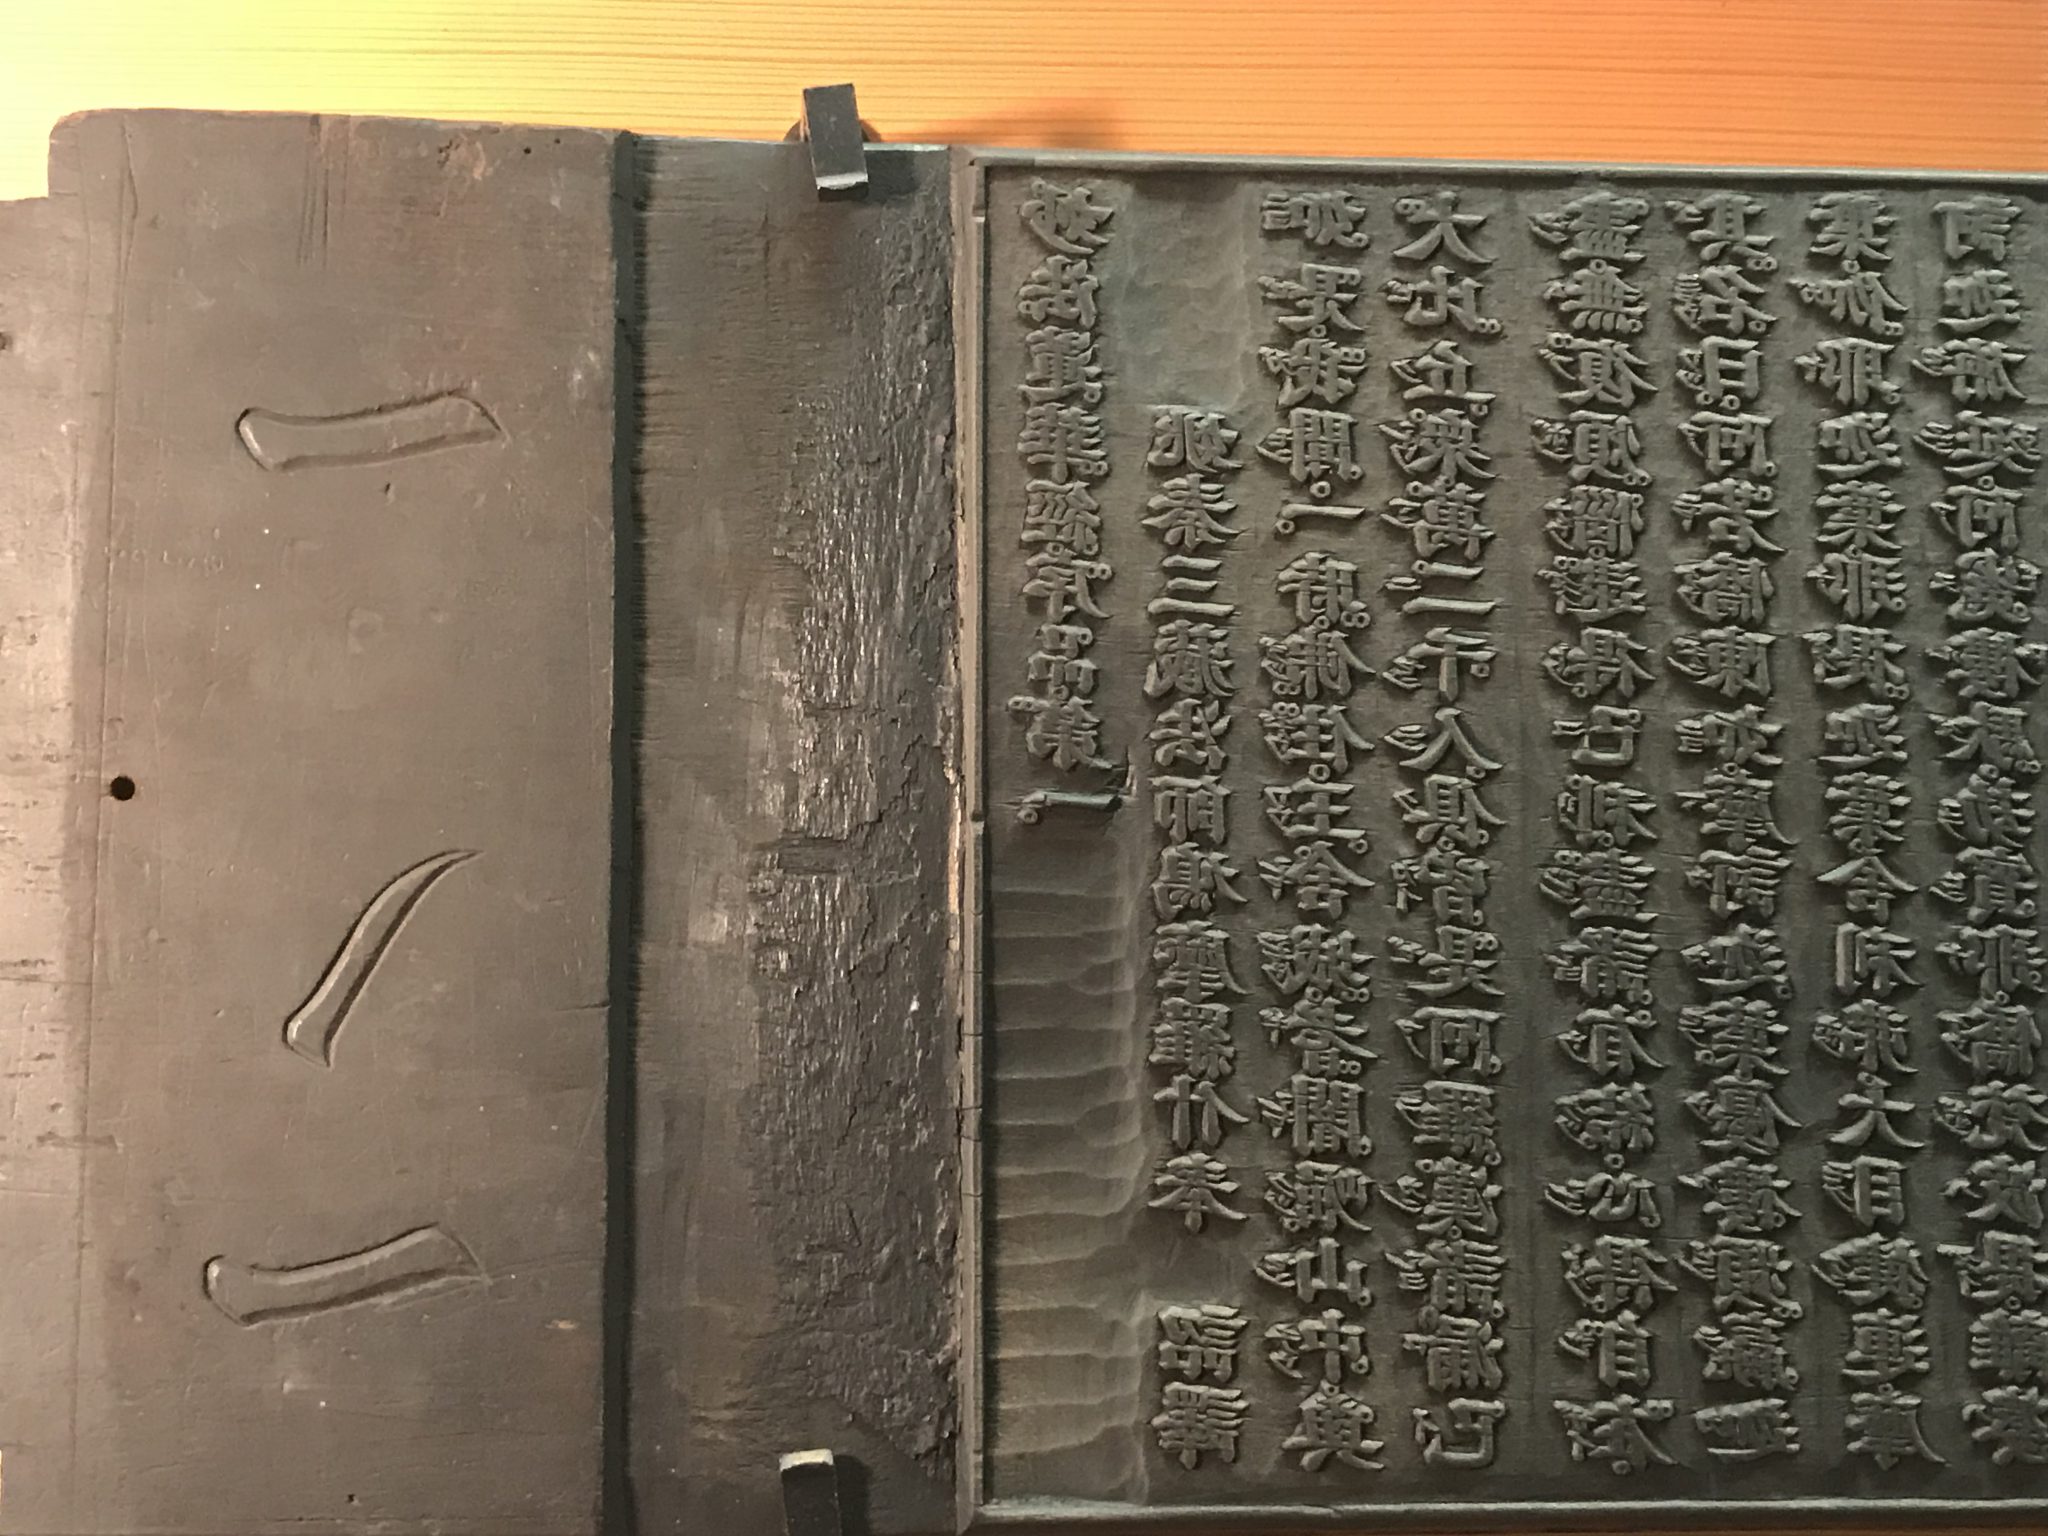 一ノ一
妙法蓮華經序品第一
姚秦三藏法師鳩摩羅什奉 詔譯
如是我聞一時佛住王舍城耆闍崛山中與
大比丘衆萬二千人俱皆是阿羅漢諸漏已
盡無復煩惱逮得己利盡諸有結心得自在
其名曰阿若憍陳如摩訶迦葉優樓頻螺迦
葉伽耶迦葉那提迦葉舍利弗大目揵連摩
訶迦旃延阿㝹樓馱劫賓那憍梵波提離婆